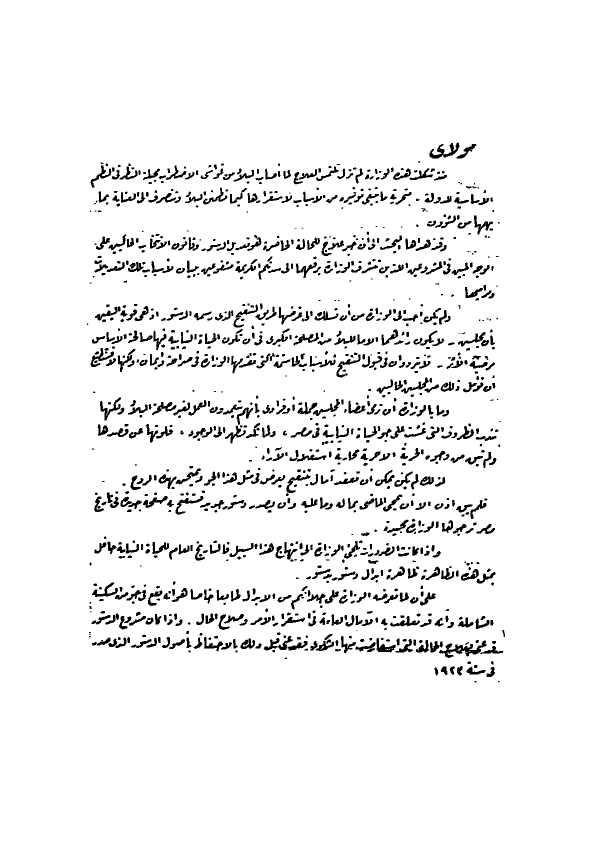 مولاى
منذ تشكلت هذه الوزارة لم تزل تلتمس العلاج لما أصاب البلاد من فواشى الاضطراب بجيلة النظر فى النظم
الأساسية للدولة . متحرية ما ينبغى توفيره من الأسباب لاستقرارها كيما تطمئن البلاد وتنصرف الى العناية بما
يهمها من الشؤون .
وقد هداها البحث الى أن خير علاج للحالة الحاضرة هو تعديل الدستور وقانون الانتخاب الحاليين على
الوجه المبين فى المشروعين اللذين تتشرف الوزارة برفعهما الى سدتكم الكريمة مشفوعين ببيان لأسباب تلك التعديلات
ومراميها .
ولم يكن أحب الى الوزارة من أن تسلك الى غرضها طريق التنقيح الذى رسمه الدستور اذ هى قوية اليقين
بأن مجلسين _ لا يكون رائدهما الا ما للبلاد من المصلحة الكبرى فى أن تكون الحياة النيابية فيها صالحة الأساس
مرضية الأثر _ لا يترددان فى قبول التنقيح للأسباب الحاسمة التى تقدمها الوزارة فى صراحة وايمان ولكنها لا تستطيع
أن تؤمل ذلك من المجلسين الحاليين .
وما بالوزارة أن ترى أعضاء المجلسين جملة أو فرادى بأنهم يتعمدون العمل لغير مصلحة البلاد ولكنها
تندب الظروف التى غشت على جو الحياة النيابية فى مصر ، ولما تكد تظهر الى الوجود ، فلوتها عن قصدها
ولم تبق من وجوه الحرية الا حرية محاربة استقلال الآراء .
لذلك لم يكن يمكن أن تعقد آمال بتنقيح يعرض فى مثل هذا الجو ويمتحن بهذه الروح .
فلم يبق اذن الا أن يمحى الماضى بماله وما عليه وأن يصدر دستور جديد تستفتح به صفحة جديدة فى تاريخ
مصر ترجوها الوزارة مجيدة .
واذا كانت الضرورات تلجئ الوزارة الى انتهاج هذا السبيل فالتاريخ العام للحياة النيابية حافل
بمثل هذه الظاهرة ظاهرة ابدال دستور بدستور .
على أن لما تعرضه الوزارة على جلالتكم من الابدال طابعا خاصا هو أنه يقع فى جو من السكينة
الشاملة وأنه قد تعلقت به الآمال العامة فى استقرار الأمر وصلاح الحال . واذا كان مشروع الدستور
قد عنى بعلاج الحالة التى استفاضت منها الشكوى فقد عنى قبل ذلك بالاحتفاظ بأصول الدستور الذى صدر
فى سنة ١٩٢٣